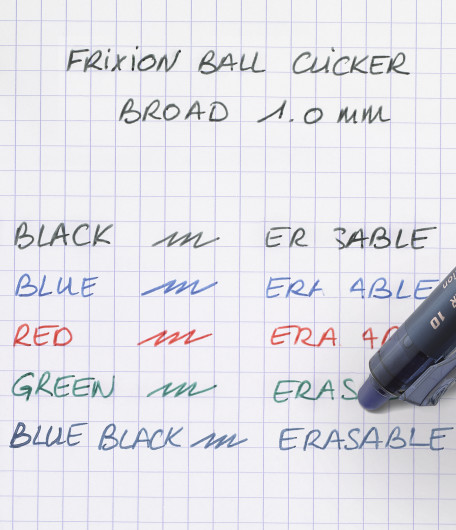 FRiXiON BALL CLiCKER
BROAD 1.0 mm
BLACK ER ABLE
BLUE ERA ABLE
RED ERA
GREEN ERAS
BLUE BLACK ERASABLE
10